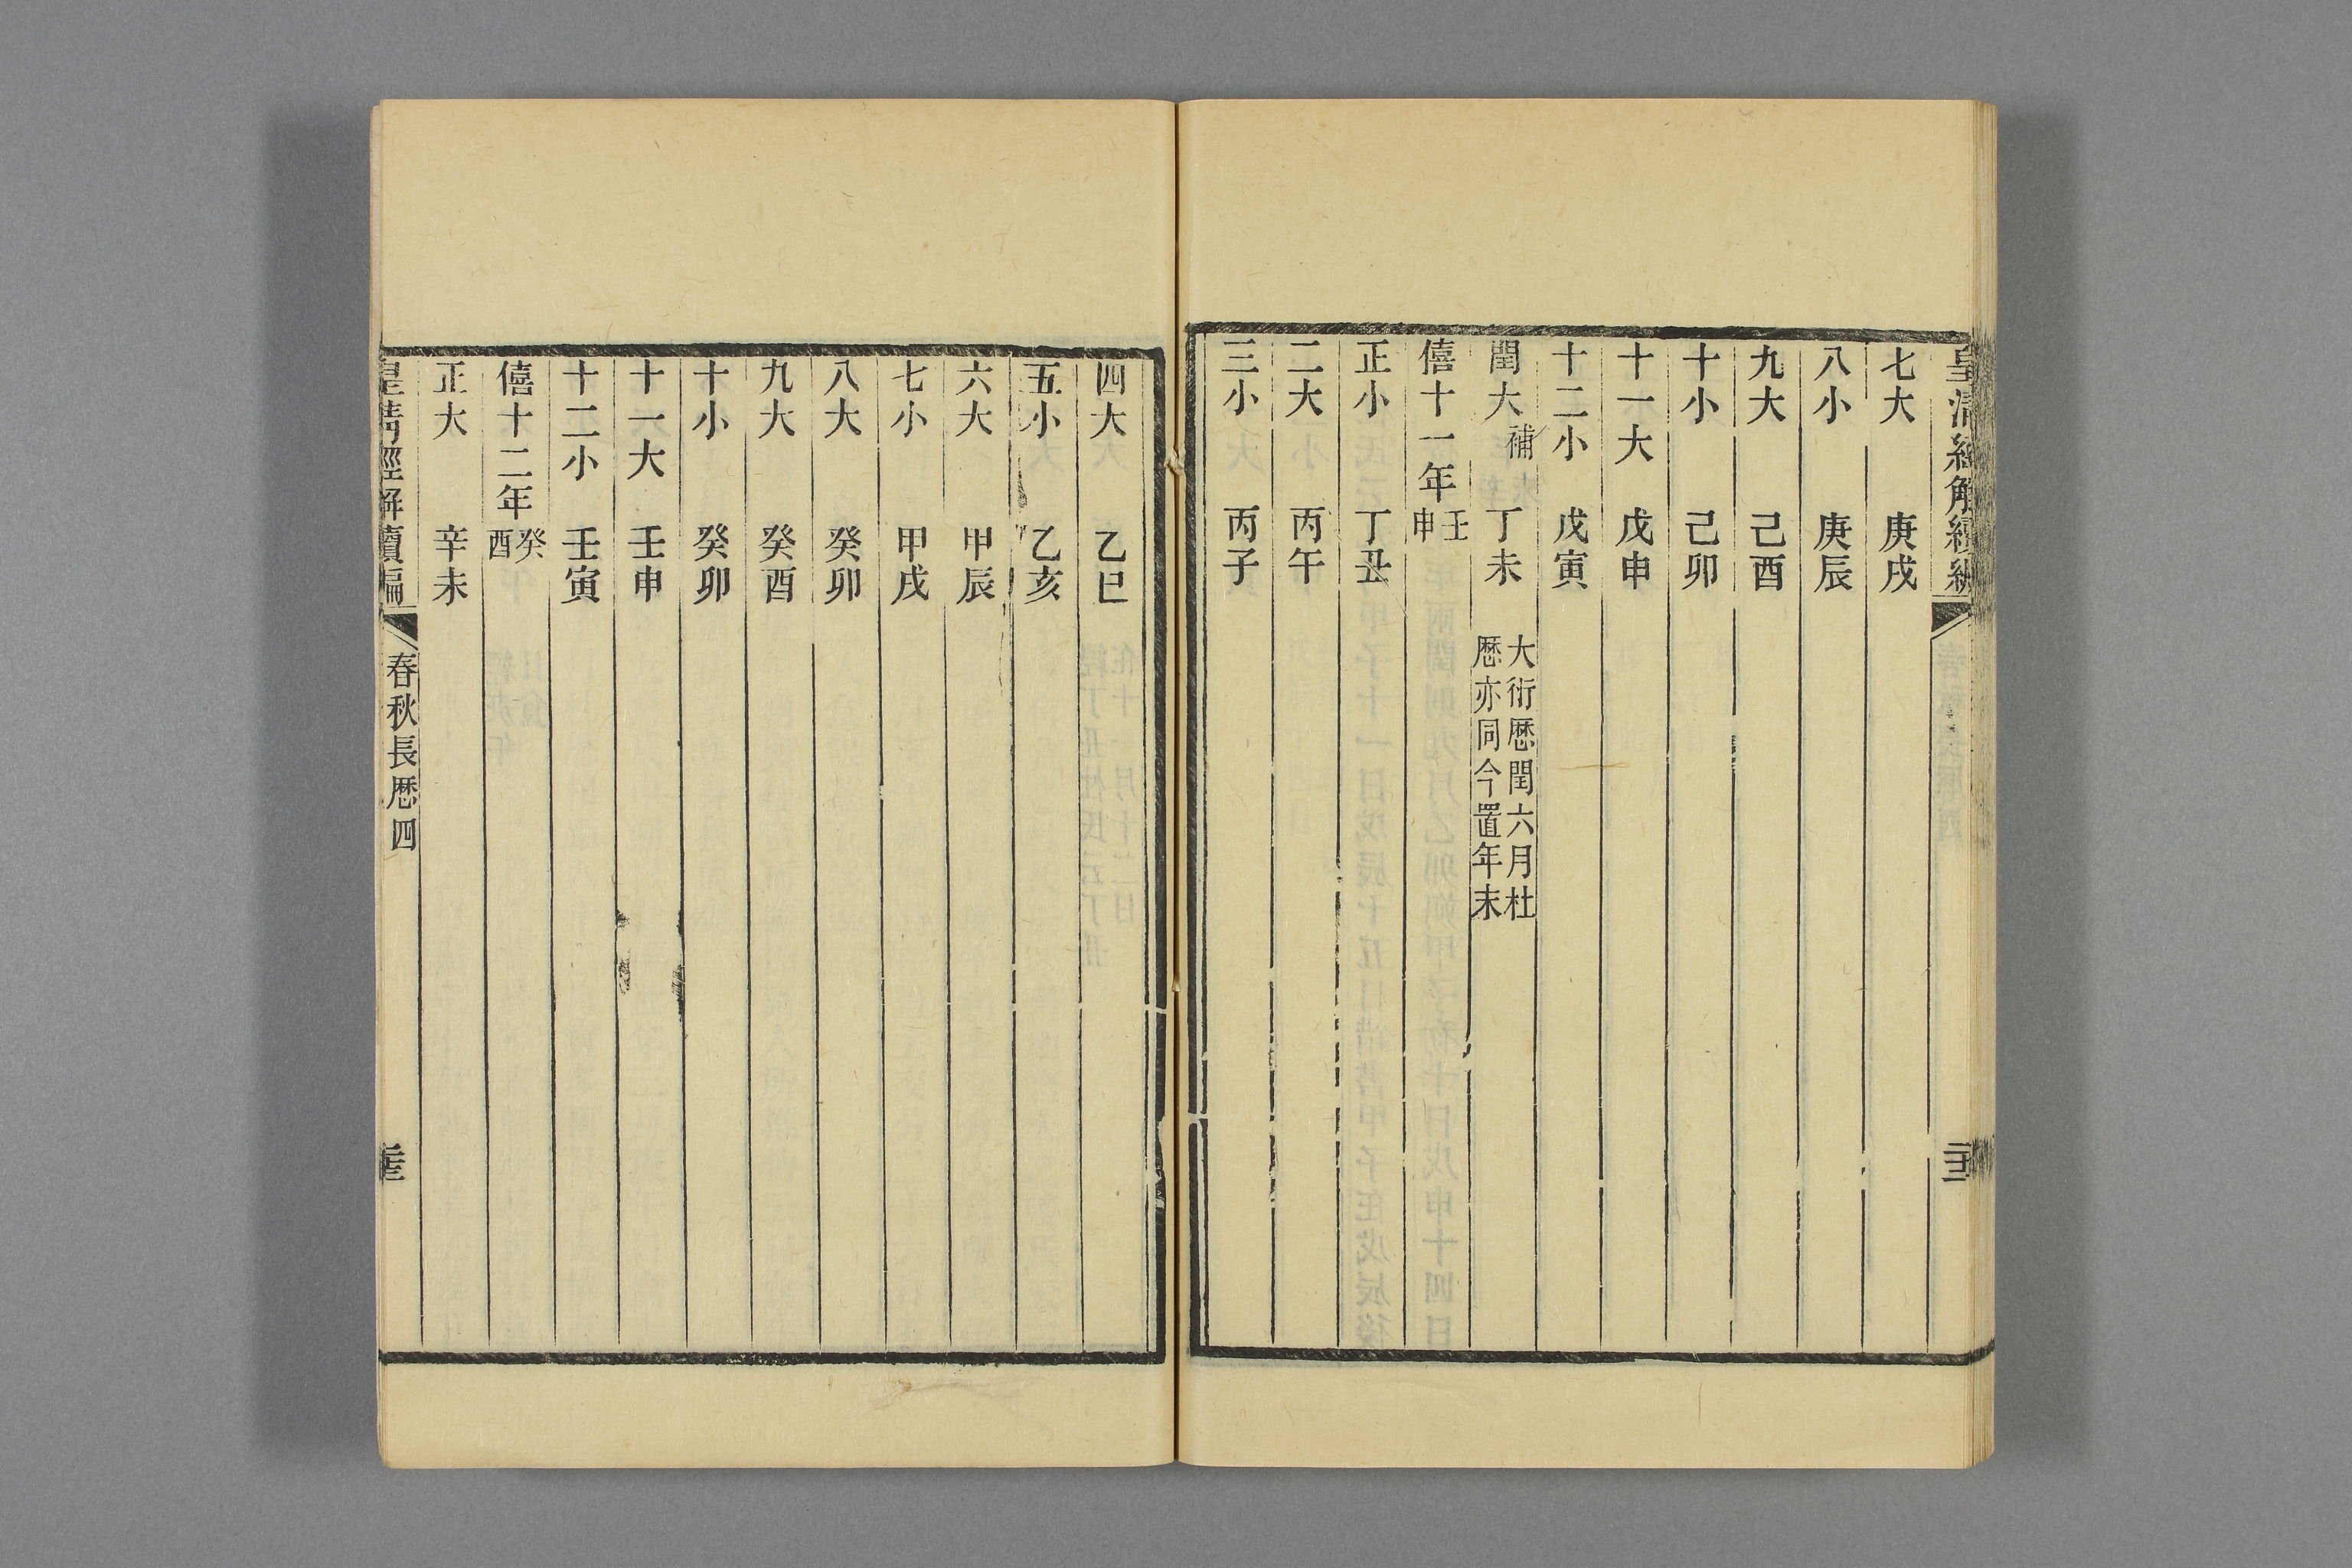 皇清經解續編
七大 庚戌
八小 庚辰
九大 己酉
十小 己卯
十一大 戊申
十二小 戊寅
閏大補 丁未 大衍厯閏六月杜厯亦同今置年末
僖十一年壬申
正小 丁丑
二大 丙午
三小 丙子
四大 乙巳
五小 乙亥
六大 甲辰
七小 甲戌
八大 癸卯
九大 癸酉
十小 癸卯
十一大 壬申
十二小 壬寅
僖十二年癸酉
正大 辛未
皇清經解續編 春秋長厯四